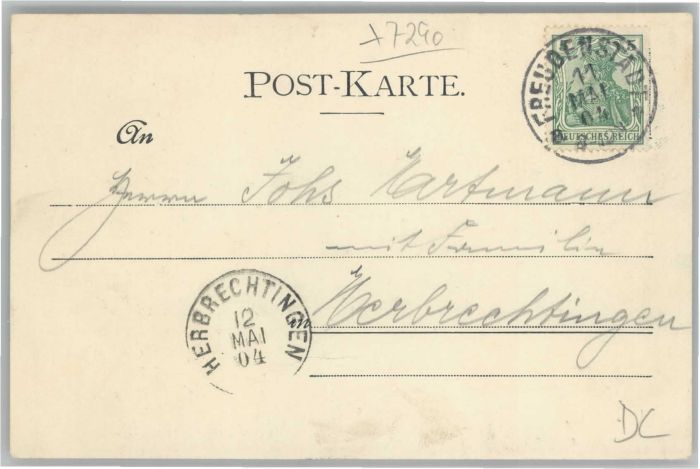 +7290
POST-KARTE.
FREUDENSTADT
11
MAI
04
DEUTSCHES REICH
An
Herrn Johs Hartmann
mit Familie
in Herbrechtingen
HERBRECHTINGEN
12
MAI
04
DC